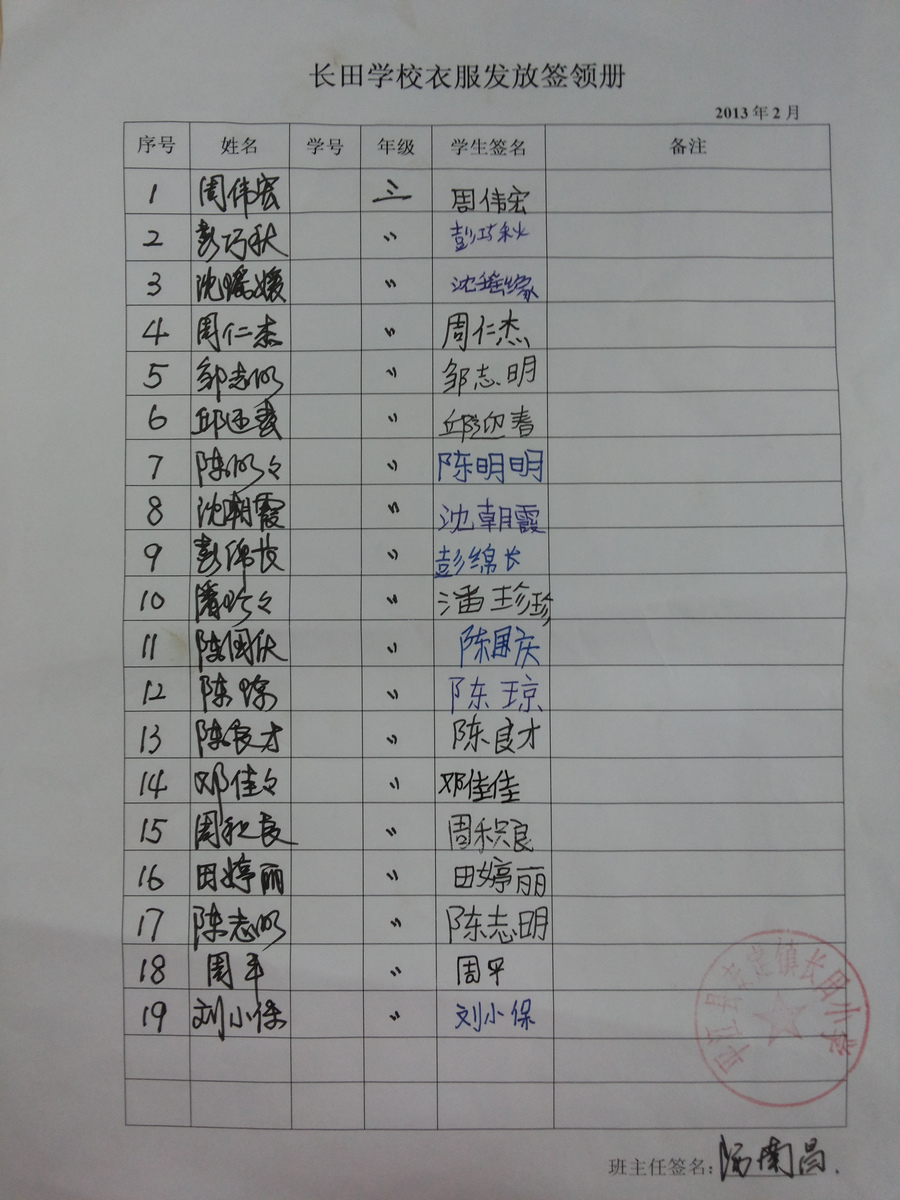 长田学校衣服发放签领册
2013年2月
序号 姓名 学号 年级 学生签名 备注
1 周伟宏 三 周伟宏
2 彭巧秋 〃 彭巧秋
3 沈瑶媛 〃 沈瑶媛
4 周仁杰 〃 周仁杰
5 邹志明 〃 邹志明
6 邱迎春 〃 邱迎春
7 陈明々 〃 陈明明
8 沈朝霞 〃 沈朝霞
9 彭绵长 〃 彭绵长
10 潘珍々 〃 潘珍珍
11 陈国庆 〃 陈国庆
12 陈琼 〃 陈琼
13 陈良才 〃 陈良才
14 邓佳々 〃 邓佳佳
15 周积良 〃 周积良
16 田婷丽 〃 田婷丽
17 陈志明 〃 陈志明
18 周平 〃 周平
19 刘小保 〃 刘小保
平江县 镇长田小学
班主任签名: 南昌.